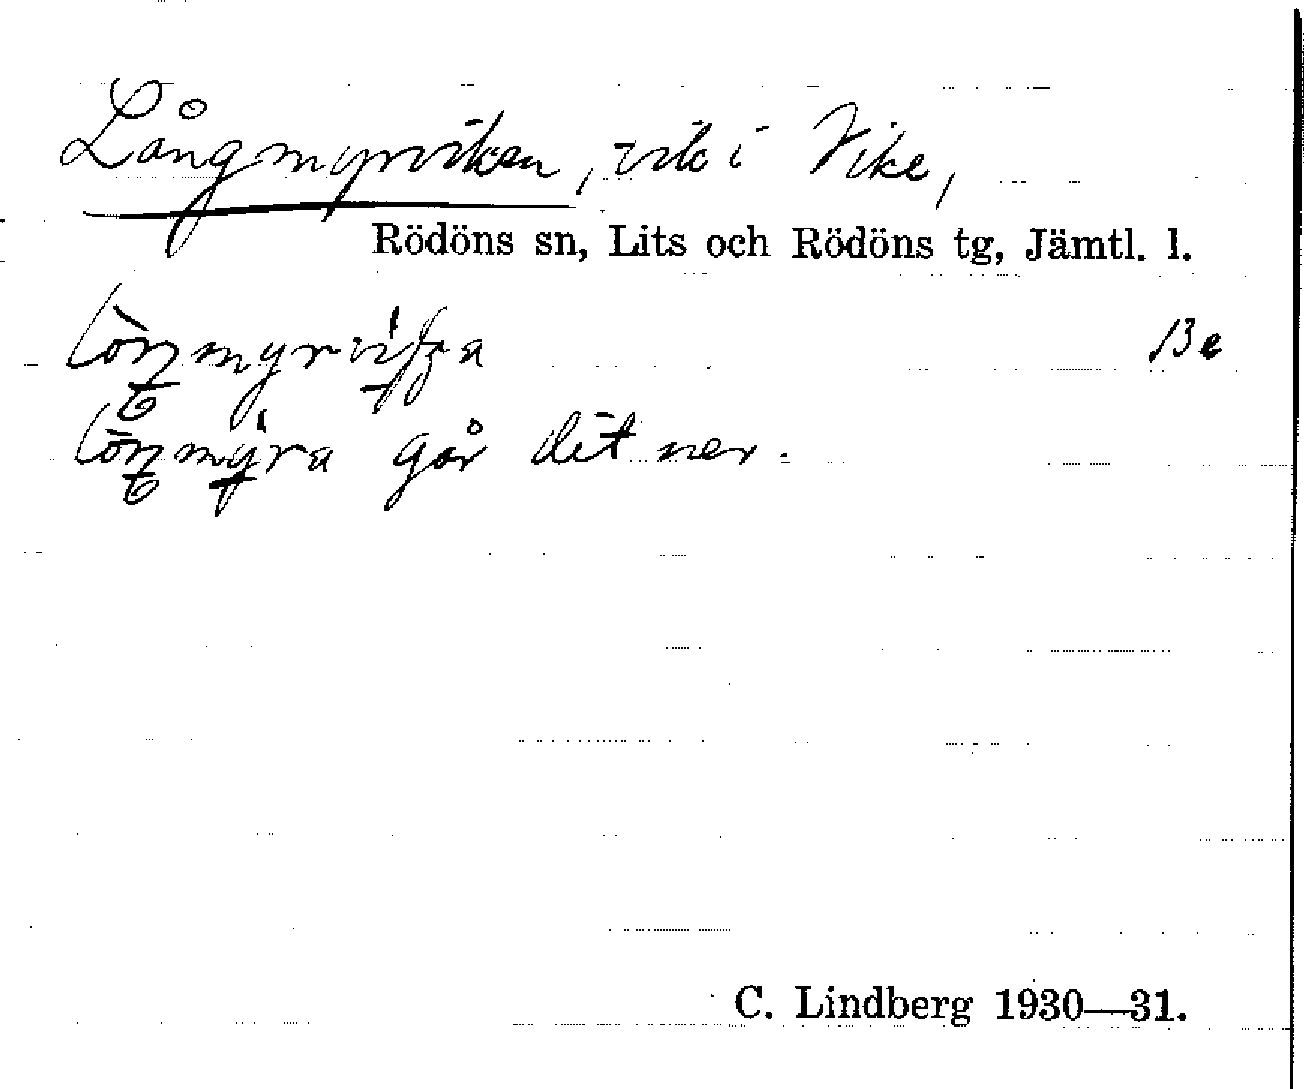 Långmyrviken, vik i Vike,
Rödöns sn, Lits och Rödöns tg, Jämtl. l.
Be
går dit ner.
C. Lindberg 1930—31.